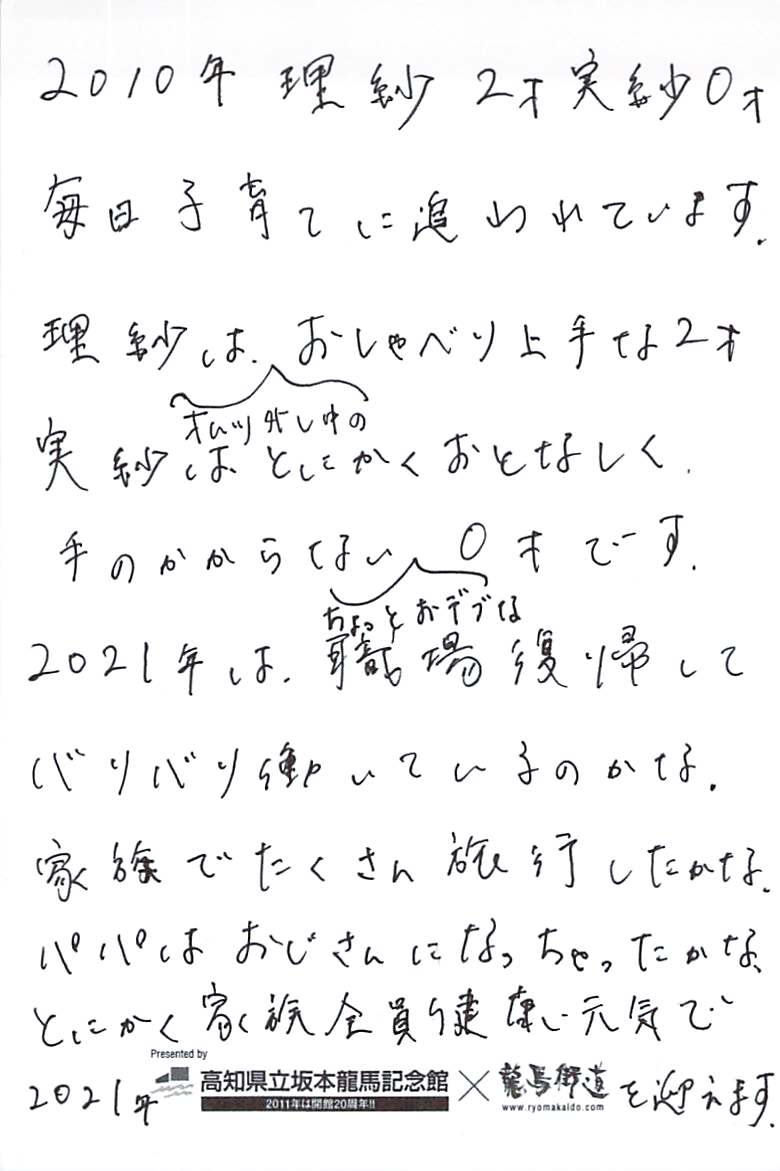 2010年 理紗 2才 実紗0才
毎日子育てに追われています.
理紗は、おしゃべり上手な2才
オムツ外し中の
実紗はとにかくおとなしく、
手のかからない 0才です.
ちょっとおデブな
2021年は、職場復帰して
バリバリ働いているのかな.
家族でたくさん旅行したかな.
パパはおじさんになっちゃったかな、
とにかく家族全員健康に元気で
2021年
を迎えます.
Presented by
高知県立坂本龍馬記念館
2011年は開館20周年!!
×
龍馬街道
www.ryomakaido.com